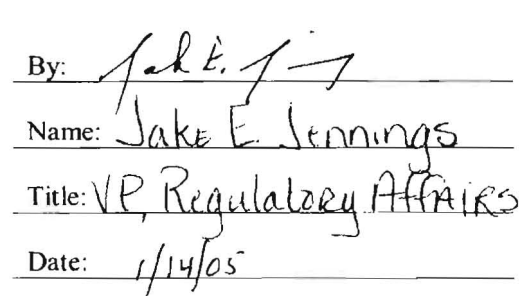 By: Jake E. J
Name: Jake E. Jennings
Title: VP, Regulatory Affairs
Date: 1/14/05